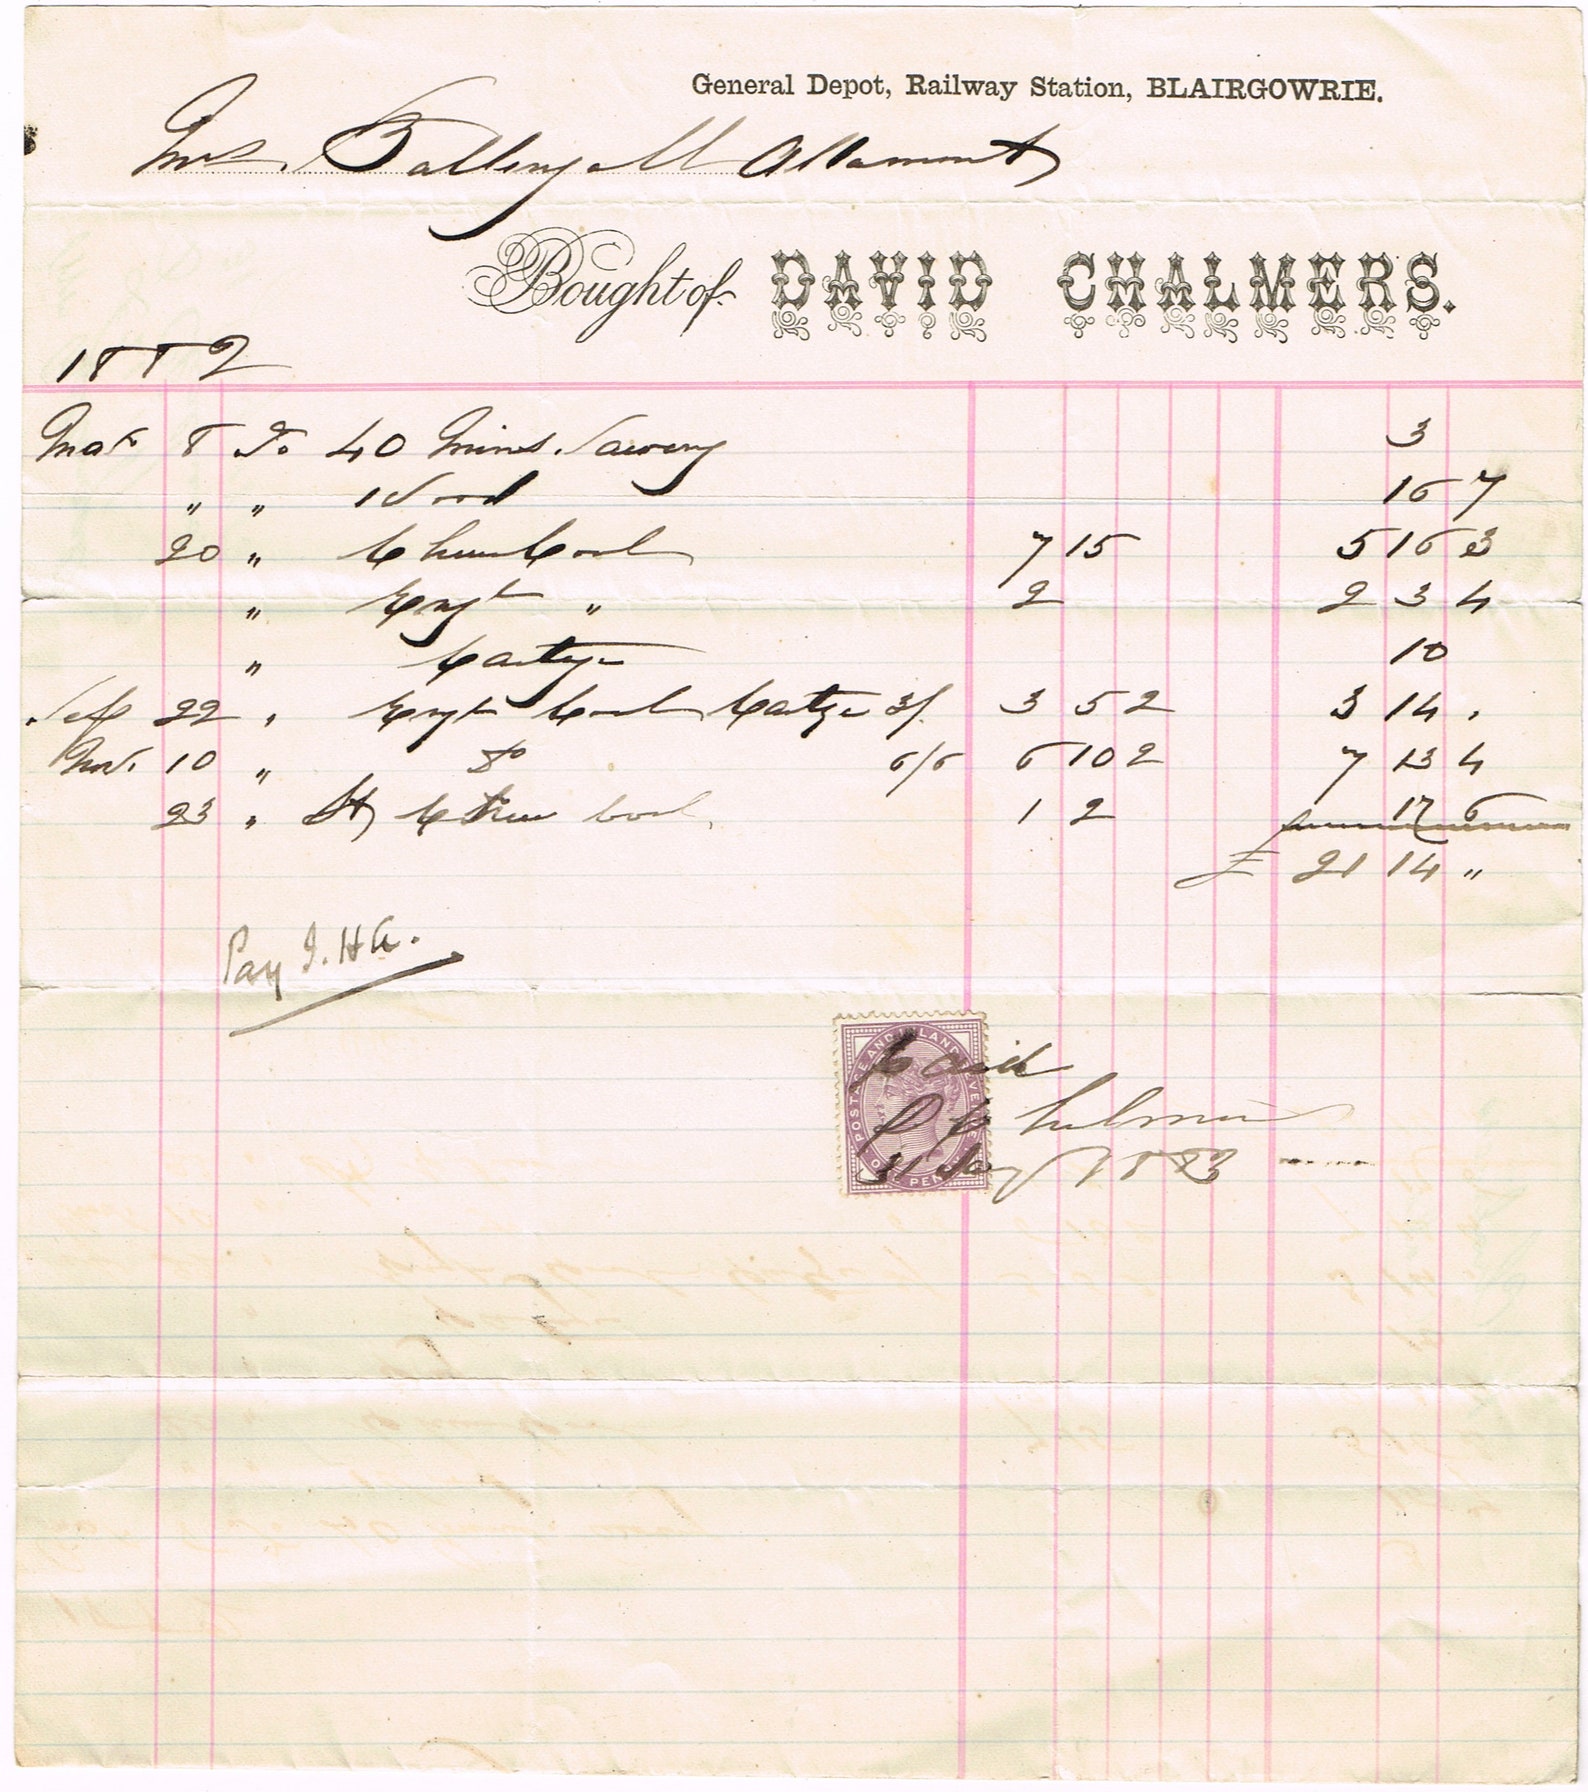 General Depot, Railway Station, BLAIRGOWRIE.
Mrs. Ballingall Altamont
Bought of DAVID CHALMERS.
1882
Mar 8 To 40 Mins. Sawing 3
" " Wood 16 7
20 " Chew Coal 7 15 5 16 3
" Engh " 2 2 3 4
" Cartge 10
Sep 22 " Engh Coal Cartge 3/ 3 5 2 3 14 .
Nov. 10 " Do 6/6 6 10 2 7 13 4
23 " Chew Coal 1 2 17 6
£ 21 14 "
Pay J. H.
POSTAGE AND INLAND REVENUE
ONE PENNY
Paid
D Chalmers
31 Jany 1883